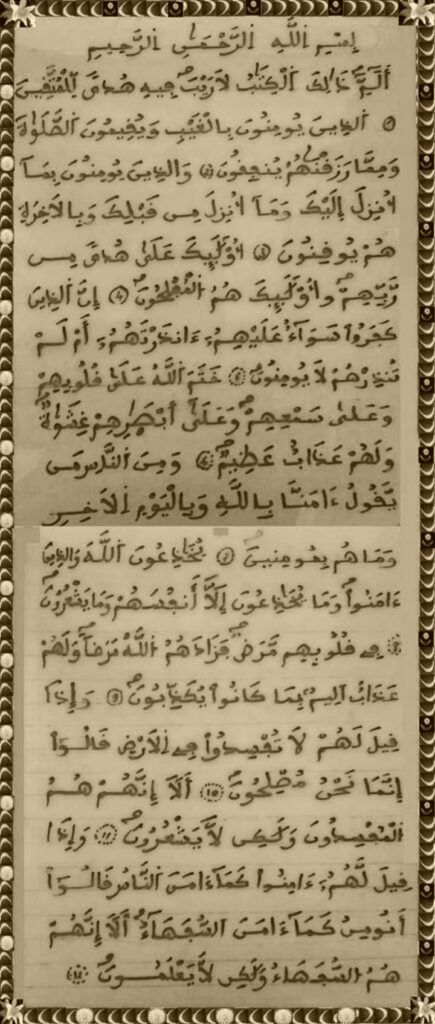 بِسْمِ اللَّهِ الرَّحْمَٰنِ الرَّحِيمِ
أَلَمِّ ذَٰلِكَ اَلْكِتَٰبُ لَا رَيْبَ فِيهِ هُدىً لِّلْمُتَّقِينَ
اَلذِينَ يُومِنُونَ بِالْغَيْبِ وَيُقِيمُونَ اَلصَّلَوٰةَ
وَمِمَّا رَزَقْنَٰهُمْ يُنفِقُونَ وَالذِينَ يُومِنُونَ بِمَا
أُنزِلَ إِلَيْكَ وَمَا أُنزِلَ مِن قَبْلِكَ وَبِالَاخِرَةِ
هُمْ يُوقِنُونَ أُوْلَٰئِكَ عَلَىٰ هُدىً مِّن
رَّبِّهِمْ وَأُوْلَٰئِكَ هُمُ اَلْمُفْلِحُونَ إِنَّ اَلذِينَ
كَفَرُواْ سَوَآءٌ عَلَيْهِمُ ءَانذَرْتَهُمُ أَمْ لَمْ
تُنذِرْهُمْ لَا يُومِنُونَ خَتَمَ اَللَّهُ عَلَىٰ قُلُوبِهِمْ
وَعَلَىٰ سَمْعِهِمْ وَعَلَىٰ أَبْصَٰرِهِمْ غِشَٰوَةٌ
وَلَهُمْ عَذَابٌ عَظِيمٌ وَمِنَ اَلنَّاسِ مَن
يَّقُولُ ءَامَنَّا بِاللَّهِ وَبِالْيَوْمِ اِلَاخِرِ
وَمَا هُم بِمُومِنِينَ يُخَٰدِعُونَ اَللَّهَ وَالذِينَ
ءَامَنُواْ وَمَا يُخَٰدِعُونَ إِلَّا أَنفُسَهُمْ وَمَا يَشْعُرُونَ
فِي قُلُوبِهِم مَّرَضٌ فَزَادَهُمُ اَللَّهُ مَرَضاً وَلَهُمْ
عَذَابٌ اَلِيمٌ بِمَا كَانُواْ يُكَذِّبُونَ وَإِذَا
قِيلَ لَهُمْ لَا تُفْسِدُواْ فِي اِلَارْضِ قَالُواْ
إِنَّمَا نَحْنُ مُصْلِحُونَ أَلَا إِنَّهُمْ هُمُ
اَلْمُفْسِدُونَ وَلَٰكِن لَّا يَشْعُرُونَ وَإِذَا
قِيلَ لَهُمُ ءَامِنُواْ كَمَا ءَامَنَ اَلنَّاسُ قَالُواْ
أَنُومِنُ كَمَا ءَامَنَ اَلسُّفَهَاءُ أَلَا إِنَّهُمْ
هُمُ اَلسُّفَهَاءُ وَلَٰكِن لَّا يَعْلَمُونَ